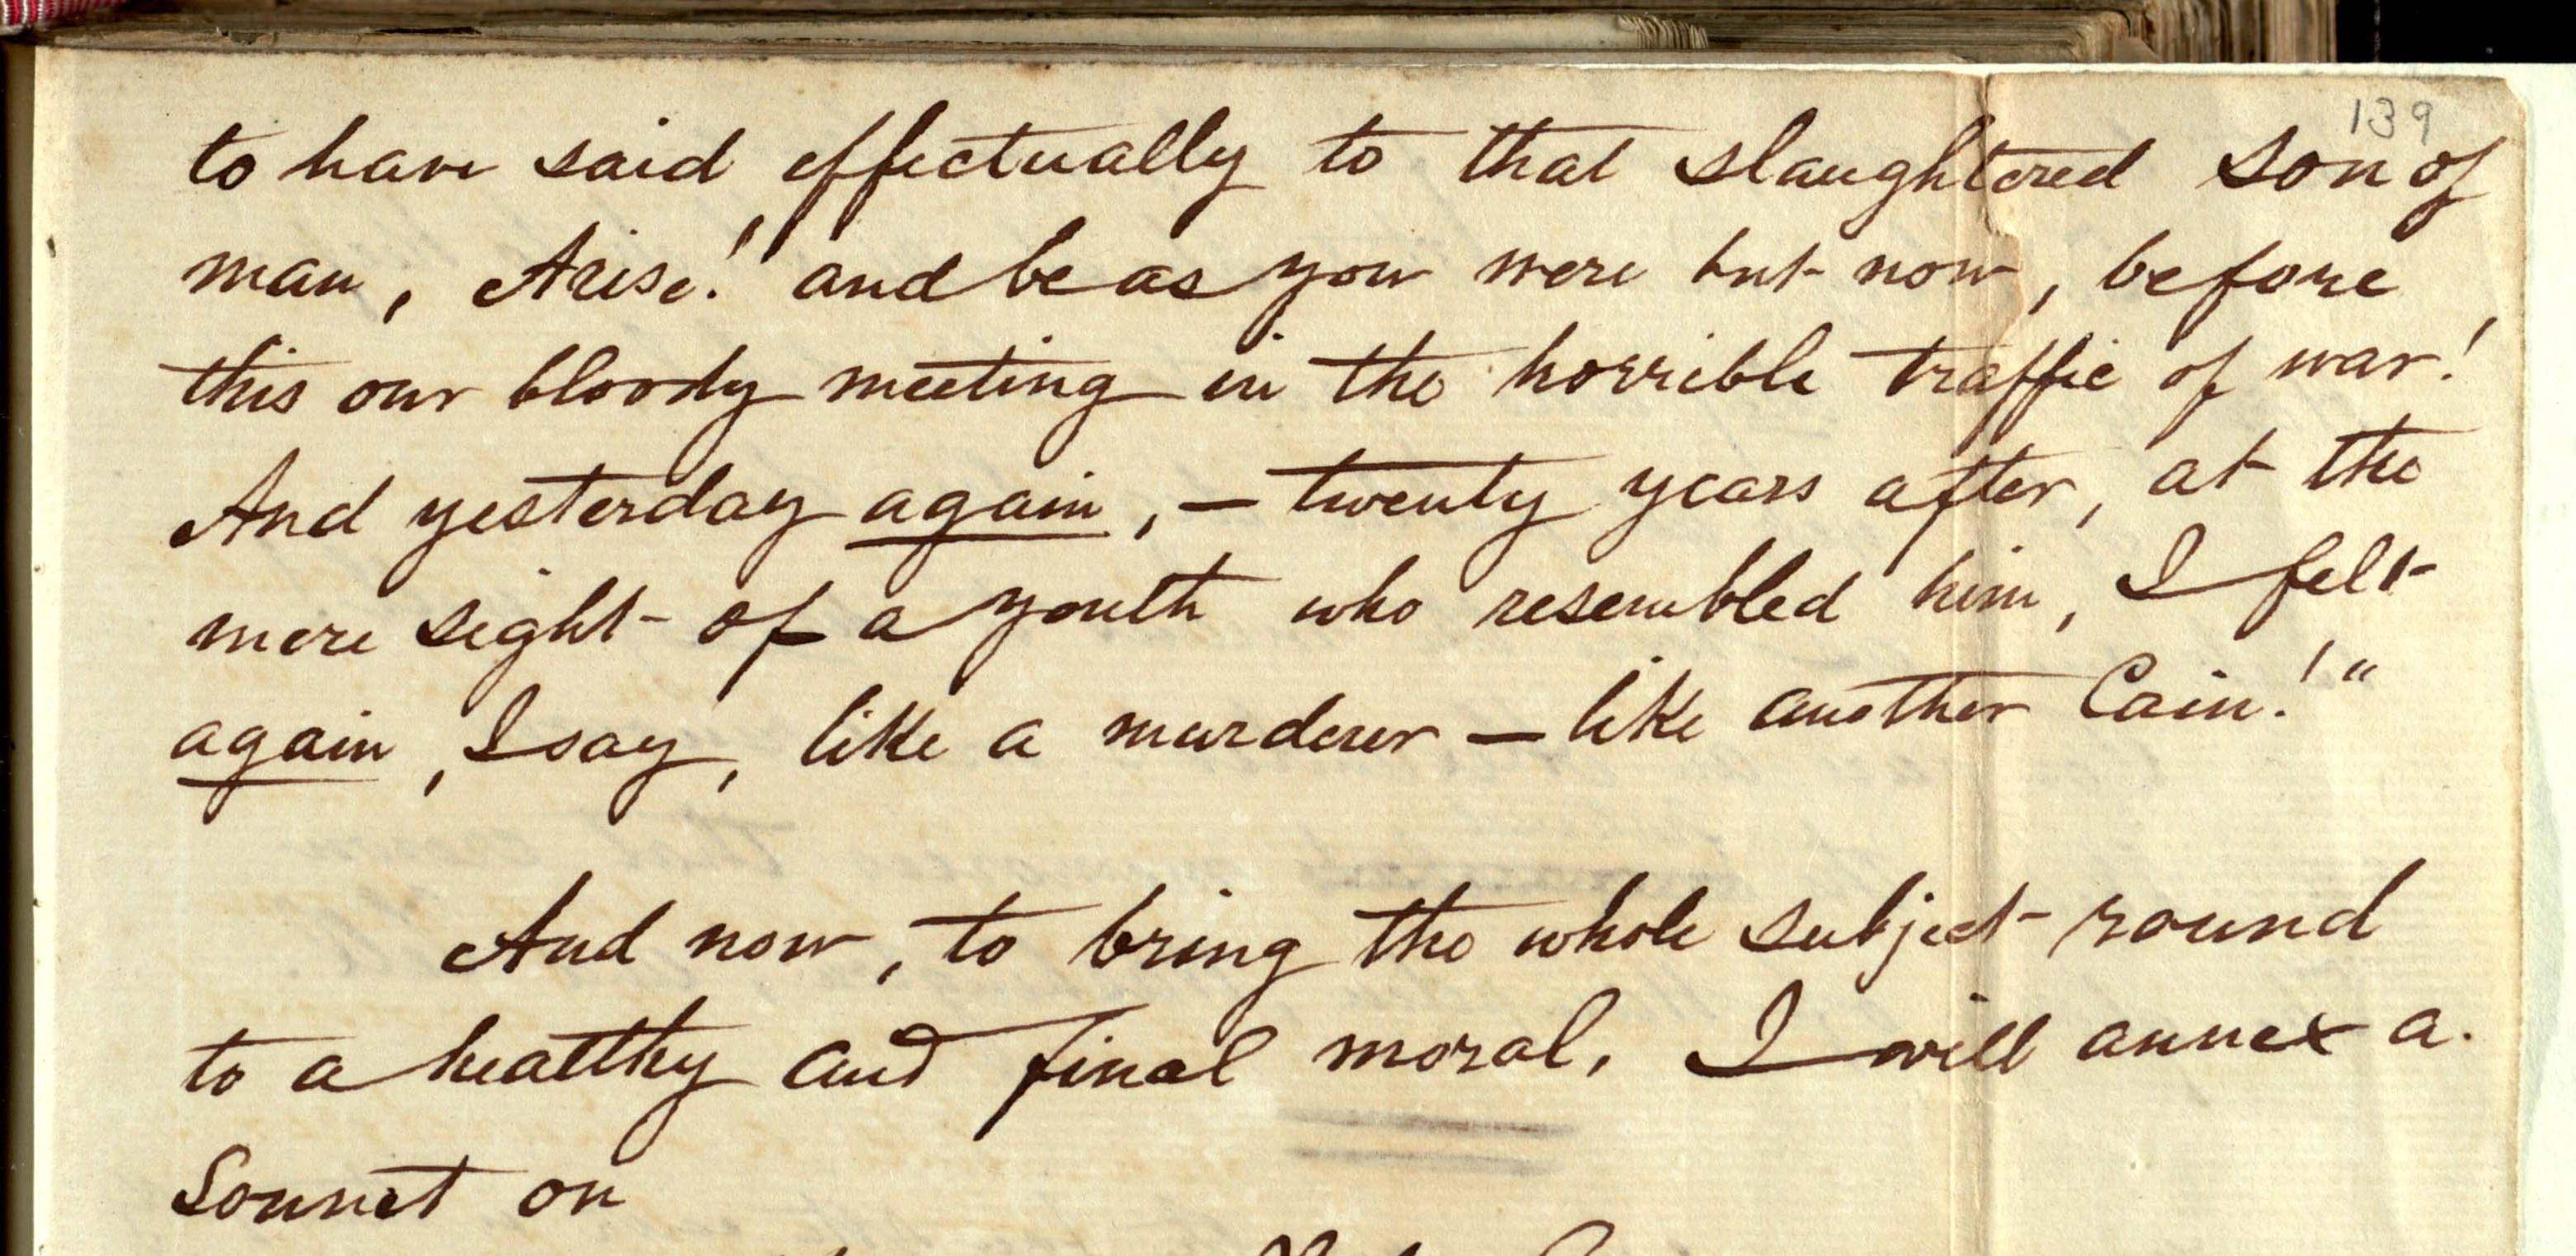 139
to have said effectually to that slaughtered son of
man, Arise! and be as you were but now, before
this our bloody meeting in the horrible traffic of war!
And yesterday again, — twenty years after, at the
mere sight of a youth who resembled him, I felt
again, I say, like a murderer — like another Cain!"
And now, to bring the whole subject round
to a healthy and final moral, I will annex a
Sonnet on